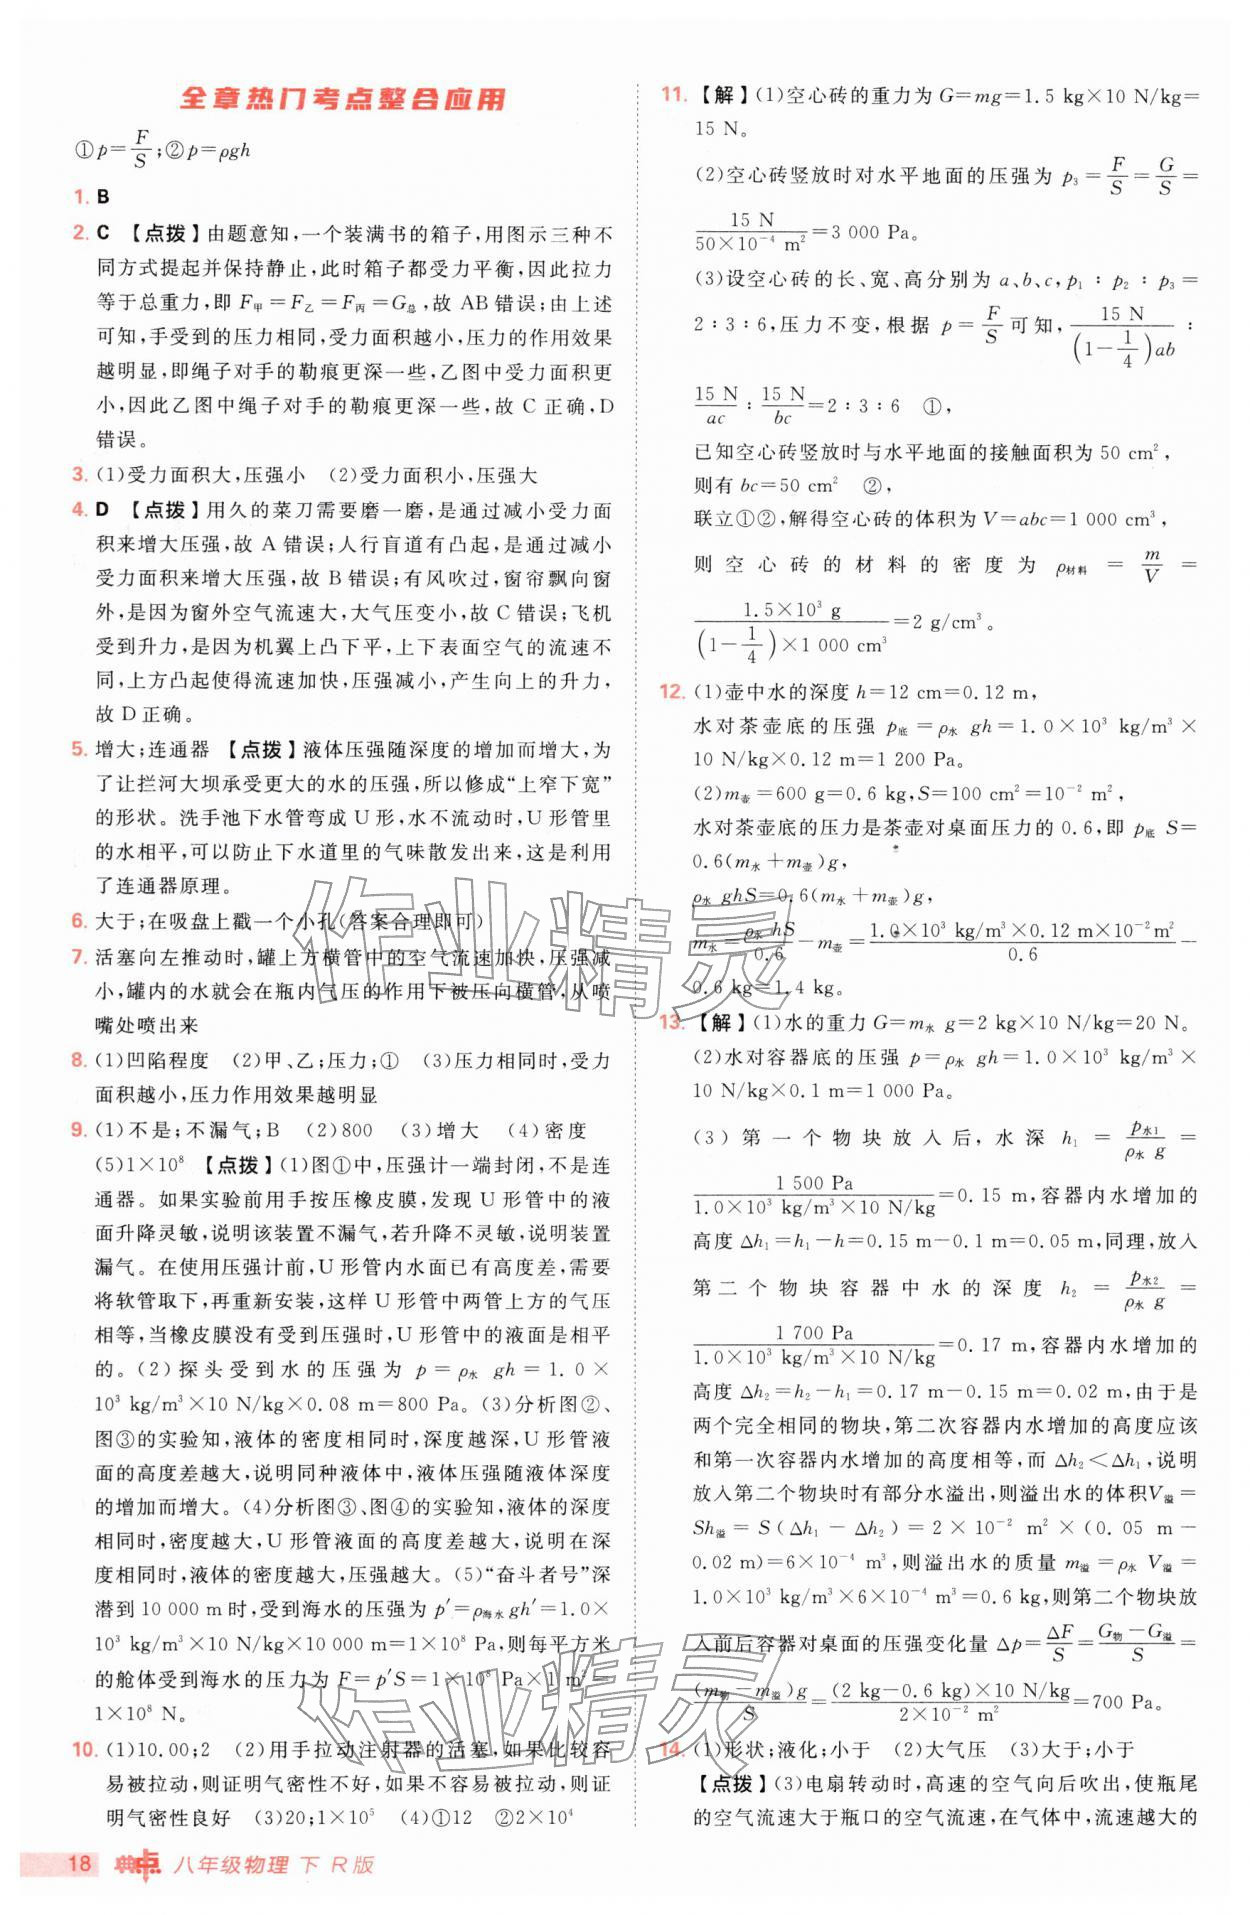 全章热门考点整合应用
①p=F/S;②p=ρgh
1. B
2. C 【点拨】由题意知,一个装满书的箱子,用图示三种不
同方式提起并保持静止,此时箱子都受力平衡,因此拉力
等于总重力,即 F甲=F乙=F丙=G总,故 AB 错误;由上述
可知,手受到的压力相同,受力面积越小,压力的作用效果
越明显,即绳子对手的勒痕更深一些,乙图中受力面积更
小,因此乙图中绳子对手的勒痕更深一些,故 C 正确,D
错误。
3. (1)受力面积大,压强小 (2)受力面积小,压强大
4. D 【点拨】用久的菜刀需要磨一磨,是通过减小受力面
积来增大压强,故 A 错误;人行盲道有凸起,是通过减小
受力面积来增大压强,故 B 错误;有风吹过,窗帘飘向窗
外,是因为窗外空气流速大,大气压变小,故 C 错误;飞机
受到升力,是因为机翼上凸下平,上下表面空气的流速不
同,上方凸起使得流速加快,压强减小,产生向上的升力,
故 D 正确。
5. 增大;连通器 【点拨】液体压强随深度的增加而增大,为
了让拦河大坝承受更大的水的压强,所以修成“上窄下宽”
的形状。洗手池下水管弯成 U 形,水不流动时,U 形管里
的水相平,可以防止下水道里的气味散发出来,这是利用
了连通器原理。
6. 大于;在吸盘上戳一个小孔(答案合理即可)
7. 活塞向左推动时,罐上方横管中的空气流速加快,压强减
小,罐内的水就会在瓶内气压的作用下被压向横管,从喷
嘴处喷出来
8. (1)凹陷程度 (2)甲、乙;压力;① (3)压力相同时,受力
面积越小,压力作用效果越明显
9. (1)不是;不漏气;B (2)800 (3)增大 (4)密度
(5)1×10⁸ 【点拨】(1)图①中,压强计一端封闭,不是连
通器。如果实验前用手按压橡皮膜,发现 U 形管中的液
面升降灵敏,说明该装置不漏气,若升降不灵敏,说明装置
漏气。在使用压强计前,U 形管内水面已有高度差,需要
将软管取下,再重新安装,这样 U 形管中两管上方的气压
相等,当橡皮膜没有受到压强时,U 形管中的液面是相平
的。(2)探头受到水的压强为 p=ρ水 gh=1.0×
10³ kg/m³×10 N/kg×0.08 m=800 Pa。(3)分析图②、
图③的实验知,液体的密度相同时,深度越深,U 形管液
面的高度差越大,说明同种液体中,液体压强随液体深度
的增加而增大。(4)分析图③、图④的实验知,液体的深度
相同时,密度越大,U 形管液面的高度差越大,说明在深
度相同时,液体的密度越大,压强越大。(5)“奋斗者号”深
潜到 10 000 m 时,受到海水的压强为 p′=ρ海水 gh′=1.0×
10³ kg/m³×10 N/kg×10 000 m=1×10⁸ Pa,则每平方米
的舱体受到海水的压力为 F=p′S=1×10⁸ Pa×1 m²=
1×10⁸ N。
10. (1)10.00;2 (2)用手拉动注射器的活塞,如果比较容
易被拉动,则证明气密性不好,如果不容易被拉动,则证
明气密性良好 (3)20;1×10⁵ (4)①12 ②2×10⁴
18 典点 八年级物理 下 R版
11. 【解】(1)空心砖的重力为 G=mg=1.5 kg×10 N/kg=
15 N。
(2)空心砖竖放时对水平地面的压强为 p₃=F/S=G/S=
15 N/(50×10⁻⁴ m²)=3 000 Pa。
(3)设空心砖的长、宽、高分别为 a、b、c,p₁∶p₂∶p₃=
2∶3∶6,压力不变,根据 p=F/S 可知,15 N/((1-1/4)ab)∶
15 N/ac∶15 N/bc=2∶3∶6 ①,
已知空心砖竖放时与水平地面的接触面积为 50 cm²,
则有 bc=50 cm² ②,
联立①②,解得空心砖的体积为 V=abc=1 000 cm³,
则空心砖的材料的密度为 ρ材料=m/V=
1.5×10³ g/((1-1/4)×1 000 cm³)=2 g/cm³。
12. (1)壶中水的深度 h=12 cm=0.12 m,
水对茶壶底的压强 p底=ρ水 gh=1.0×10³ kg/m³×
10 N/kg×0.12 m=1 200 Pa。
(2)m壶=600 g=0.6 kg,S=100 cm²=10⁻² m²,
水对茶壶底的压力是茶壶对桌面压力的 0.6,即 p底 S=
0.6(m水+m壶)g,
ρ水 ghS=0.6(m水+m壶)g,
m水=ρ水 hS/0.6-m壶=(1.0×10³ kg/m³×0.12 m×10⁻² m²)/0.6-
0.6 kg=1.4 kg。
13. 【解】(1)水的重力 G=m水 g=2 kg×10 N/kg=20 N。
(2)水对容器底的压强 p=ρ水 gh=1.0×10³ kg/m³×
10 N/kg×0.1 m=1 000 Pa。
(3)第一个物块放入后,水深 h₁=p水1/(ρ水 g)=
1 500 Pa/(1.0×10³ kg/m³×10 N/kg)=0.15 m,容器内水增加的
高度 Δh₁=h₁-h=0.15 m-0.1 m=0.05 m,同理,放入
第二个物块容器中水的深度 h₂=p水2/(ρ水 g)=
1 700 Pa/(1.0×10³ kg/m³×10 N/kg)=0.17 m,容器内水增加的
高度 Δh₂=h₂-h₁=0.17 m-0.15 m=0.02 m,由于是
两个完全相同的物块,第二次容器内水增加的高度应该
和第一次容器内水增加的高度相等,而 Δh₂<Δh₁,说明
放入第二个物块时有部分水溢出,则溢出水的体积V溢=
Sh溢=S(Δh₁-Δh₂)=2×10⁻² m²×(0.05 m-
0.02 m)=6×10⁻⁴ m³,则溢出水的质量 m溢=ρ水 V溢=
1.0×10³ kg/m³×6×10⁻⁴ m³=0.6 kg,则第二个物块放
入前后容器对桌面的压强变化量 Δp=ΔF/S=(G物-G溢)/S=
(m物-m溢)g/S=(2 kg-0.6 kg)×10 N/kg/(2×10⁻² m²)=700 Pa。
14. (1)形状;液化;小于 (2)大气压 (3)大于;小于
【点拨】(3)电扇转动时,高速的空气向后吹出,使瓶尾
的空气流速大于瓶口的空气流速,在气体中,流速越大的
作业精灵
作业精灵